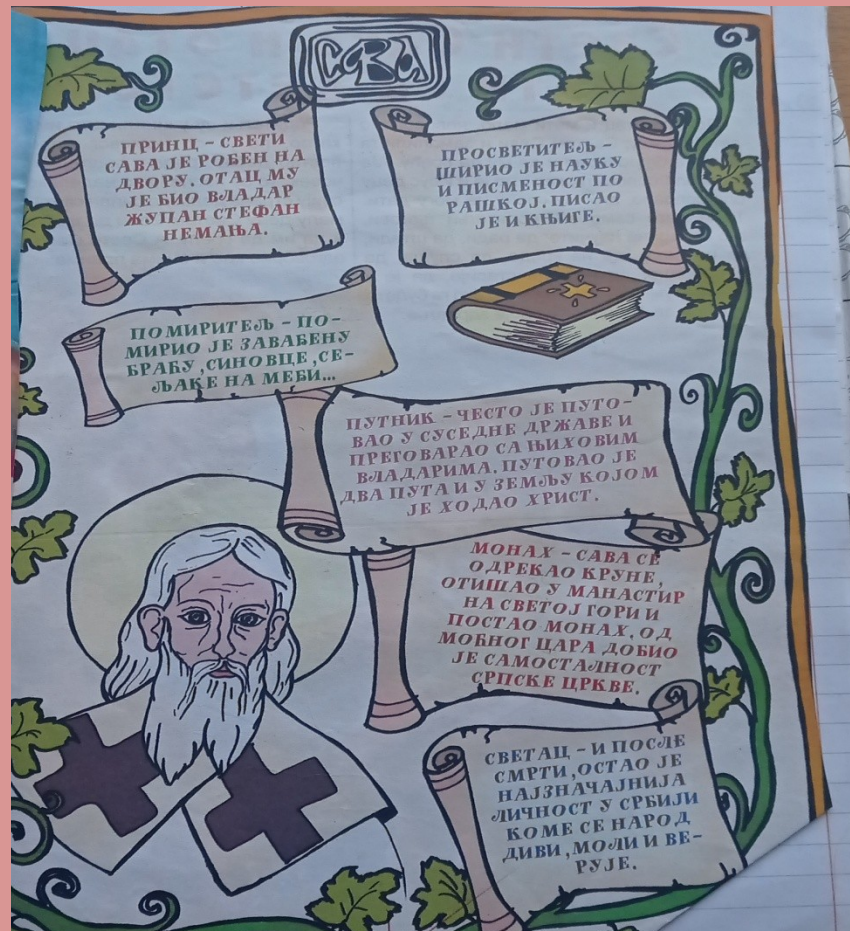 СВА
ПРИНЦ – СВЕТИ
САВА ЈЕ РОЂЕН НА
ДВОРУ. ОТАЦ МУ
ЈЕ БИО ВЛАДАР
ЖУПАН СТЕФАН
НЕМАЊА.
ПРОСВЕТИТЕЉ –
ШИРИО ЈЕ НАУКУ
И ПИСМЕНОСТ ПО
РАШКОЈ. ПИСАО
ЈЕ И КЊИГЕ.
ПОМИРИТЕЉ – ПО–
МИРИО ЈЕ ЗАВАЂЕНУ
БРАЋУ ,СИНОВЦЕ ,СЕ–
ЉАКЕ НА МЕЂИ...
ПУТНИК – ЧЕСТО ЈЕ ПУТО–
ВАО У СУСЕДНЕ ДРЖАВЕ И
ПРЕГОВАРАО СА ЊИХОВИМ
ВЛАДАРИМА. ПУТОВАО ЈЕ
ДВА ПУТА И У ЗЕМЉУ КОЈОМ
ЈЕ ХОДАО ХРИСТ.
МОНАХ – САВА СЕ
ОДРЕКАО КРУНЕ,
ОТИШАО У МАНАСТИР
НА СВЕТОЈ ГОРИ И
ПОСТАО МОНАХ. ОД
МОЋНОГ ЦАРА ДОБИО
ЈЕ САМОСТАЛНОСТ
СРПСКЕ ЦРКВЕ.
СВЕТАЦ – И ПОСЛЕ
СМРТИ ,ОСТАО ЈЕ
НАЈЗНАЧАЈНИЈА
ЛИЧНОСТ У СРБИЈИ
КОМЕ СЕ НАРОД
ДИВИ ,МОЛИ И ВЕ–
РУЈЕ.